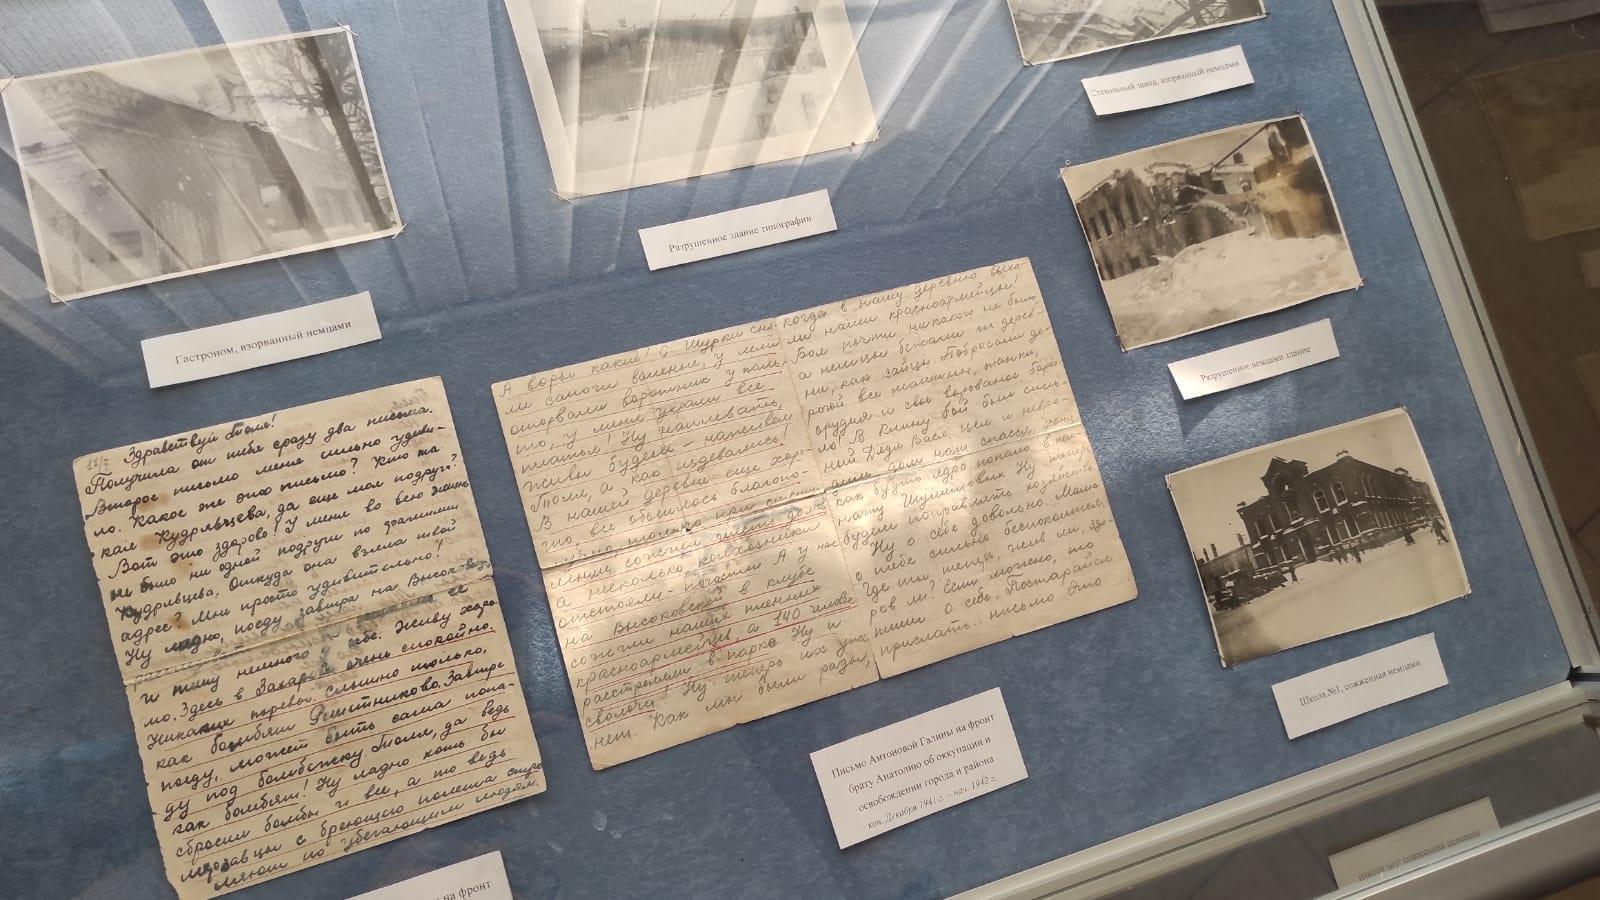 Стекольный завод, взорванный немцами
Разрушенное здание типографии
Гастроном, взорванный немцами
Разрушенное немцами здание
Школа №1, сожженная немцами
Здравствуй Толя!
Получила от тебя сразу два письма.
Второе письмо меня сильно удиви-
ло. Какое же это письмо? Кто та
кая Кудрявцева, да еще моя подруга?
Вот это здорово! У меня во всю жизнь
не было ни одной подруги по фамилии
Кудрявцева. Откуда она взяла твой
адрес? Мне просто удивительно!
Ну ладно, поеду завтра на Высоковск,
пишу немного о себе. Живу хоро
шо. Здесь в Захарове очень спокойно.
Никаких слышно только,
как бомбят Решетниково. Завтра
поеду, может быть сама попа-
ду под бомбежку. Толя, да ведь
как бомбят! Ну ладно хоть бы
сбросил бомбы и все, а то ведь
мерзавцы с бреющего полета
по убегающим людям.
А воры какие! С Шурки сня-
ли сапоги валеные, у
оторвали воротник у пальто,
то, у меня украли все
платья! Ну наплевать,
живы будем - наживем
Толя, а как издевались!
В нашей деревне еще хоро-
шо, все обошлось благопо-
лучно, только при
ленин сожгли пять домов
а несколько колхозники
отстояли - погасили А у нас
на Высоковской в клубе
сожгли наших пленных
красноармейцев, а 140 человек
расстреляли в парке. Ну и
сволочи! Ну теперь их уже
нет. Как мы были рады,
когда в нашу деревню въеха-
ли наши красноармейцы!
Боя почти никакого не было,
а немцы бежали из дерев-
ни, как зайцы. Побросали до-
рогой все машины, танки,
орудия и свое ворованое барах-
ло! В Клину бой был силь-
ный Дядя Вася цел и невре-
дим дом наш спасся, хотя
как будто ядро попало в ком-
нату Шуленковых Ну теперь
будем поправлять хозяйство
Ну о себе довольно. Мама
о тебе сильно беспокоится,
Где ты теперь, жив ли, здо-
ров ли? Если можно, то
пиши о себе. Постарайся
прислать письмо. Это
Письмо Антоновой Галины на фронт
брату Анатолию об оккупации и
освобождении города и района
кон. Декабря 1941 г. – нач. 1942 г.
на фронт